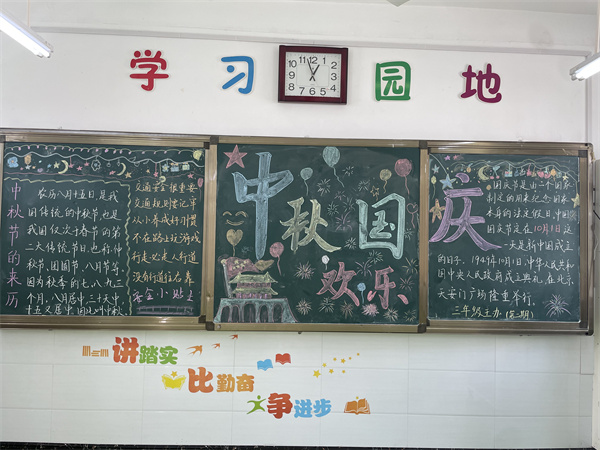 学习园地
12
1
2
3
4
5
6
7
8
9
10
11
中秋节的来历
农历八月十五日,是我
国传统的中秋节,也是
我国仅次于春节的第
二大传统节日,也称仲
秋节、团圆节、八月节等,
因为秋季的七、八、九三
个月,八月居中,三十天中,
十五又居中,因此叫中秋
交通安全很重要
交通规则要记牢
从小养成好习惯
不在路上玩游戏
行走应走人行道
没有行道往右靠
安全小贴士
中秋国庆
欢乐
国庆节是由一个国家
制定的用来纪念国家
本身的法定假日,中国
国庆节是在10月1日这
一天是新中国成立
的日子。1949年10月1日,中华人民共和
国中央人民政府成立典礼,在北京
天安门广场隆重举行。
三年级主办(第一期)
讲踏实
比勤奋
争进步